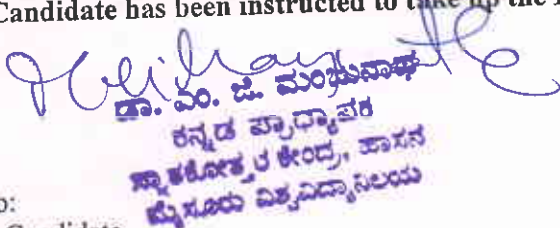 Candidate has been instructed to take up the
ಡಾ. ಎಂ. ಜೆ. ಮಂಜುನಾಥ
ಕನ್ನಡ ಪ್ರಾಧ್ಯಾಪಕ
ಸ್ನಾತಕೋತ್ತರ ಕೇಂದ್ರ, ಹಾಸನ
ಮೈಸೂರು ವಿಶ್ವವಿದ್ಯಾನಿಲಯ
o:
Candidate